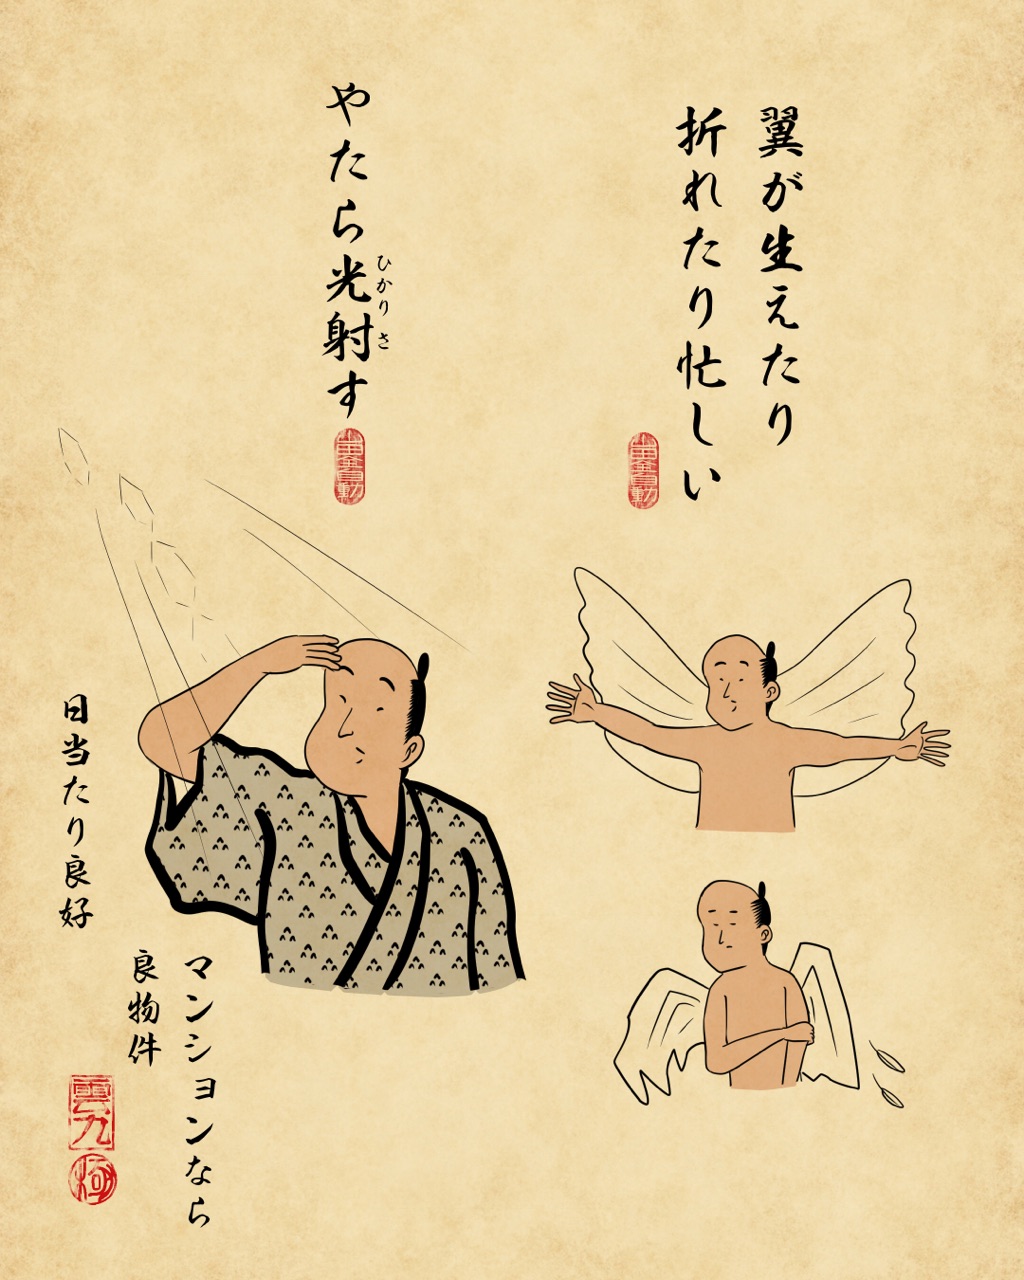 翼が生えたり
折れたり忙しい
やたら光射す
ひかりさ
日当たり良好
マンションなら
良物件